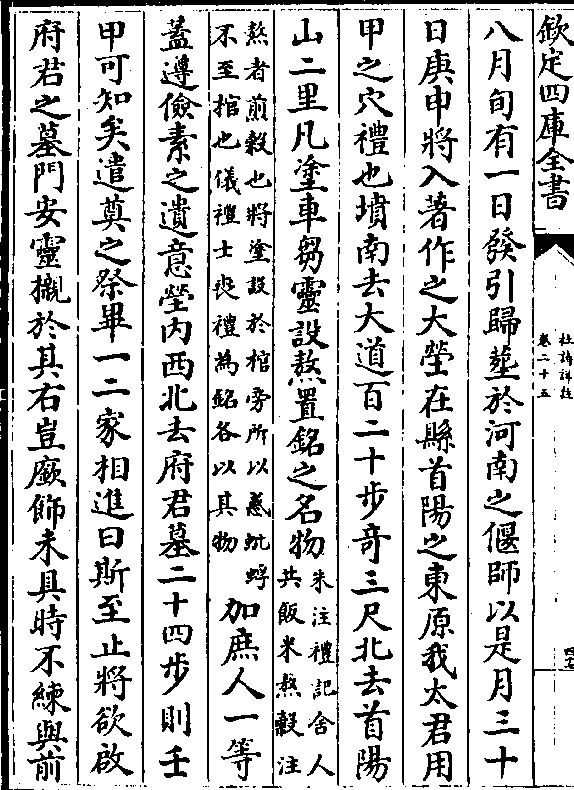 欽定四庫全書
杜詩詳註
卷二十五
八月旬有一日發引歸塟於河南之偃師以是月三十
日庚申將入著作之大塋在縣首陽之東原我太君用
甲之穴禮也墳南去大道百二十步竒三尺北去首陽
山二里凡塗車芻靈設熬置銘之名物
朱注禮記舍人
共飯米熬穀注
熬者煎穀也將塗設於棺旁所以惑蚍蜉
不至棺也儀禮士喪禮為銘各以其物
加庶人一等
蓋遵儉素之遺意塋内西北去府君墓二十四步則壬
甲可知矣遣奠之祭畢一二家相進曰斯至止將欲啟
府君之墓門安靈櫬於其右豈廞飾未具時不練與前